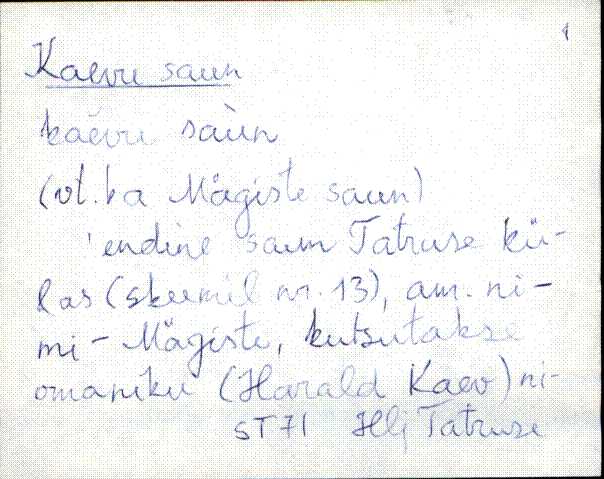 Kaevu saun
kaevu saùn
(vt. ka Mägiste saun)
'endine saun Tatruse kü-
las (skeemil nr. 13), am. ni-
mi - Mägiste, kutsutakse
omaniku (Harald Kaev) ni-
ST 71 HljTatruse